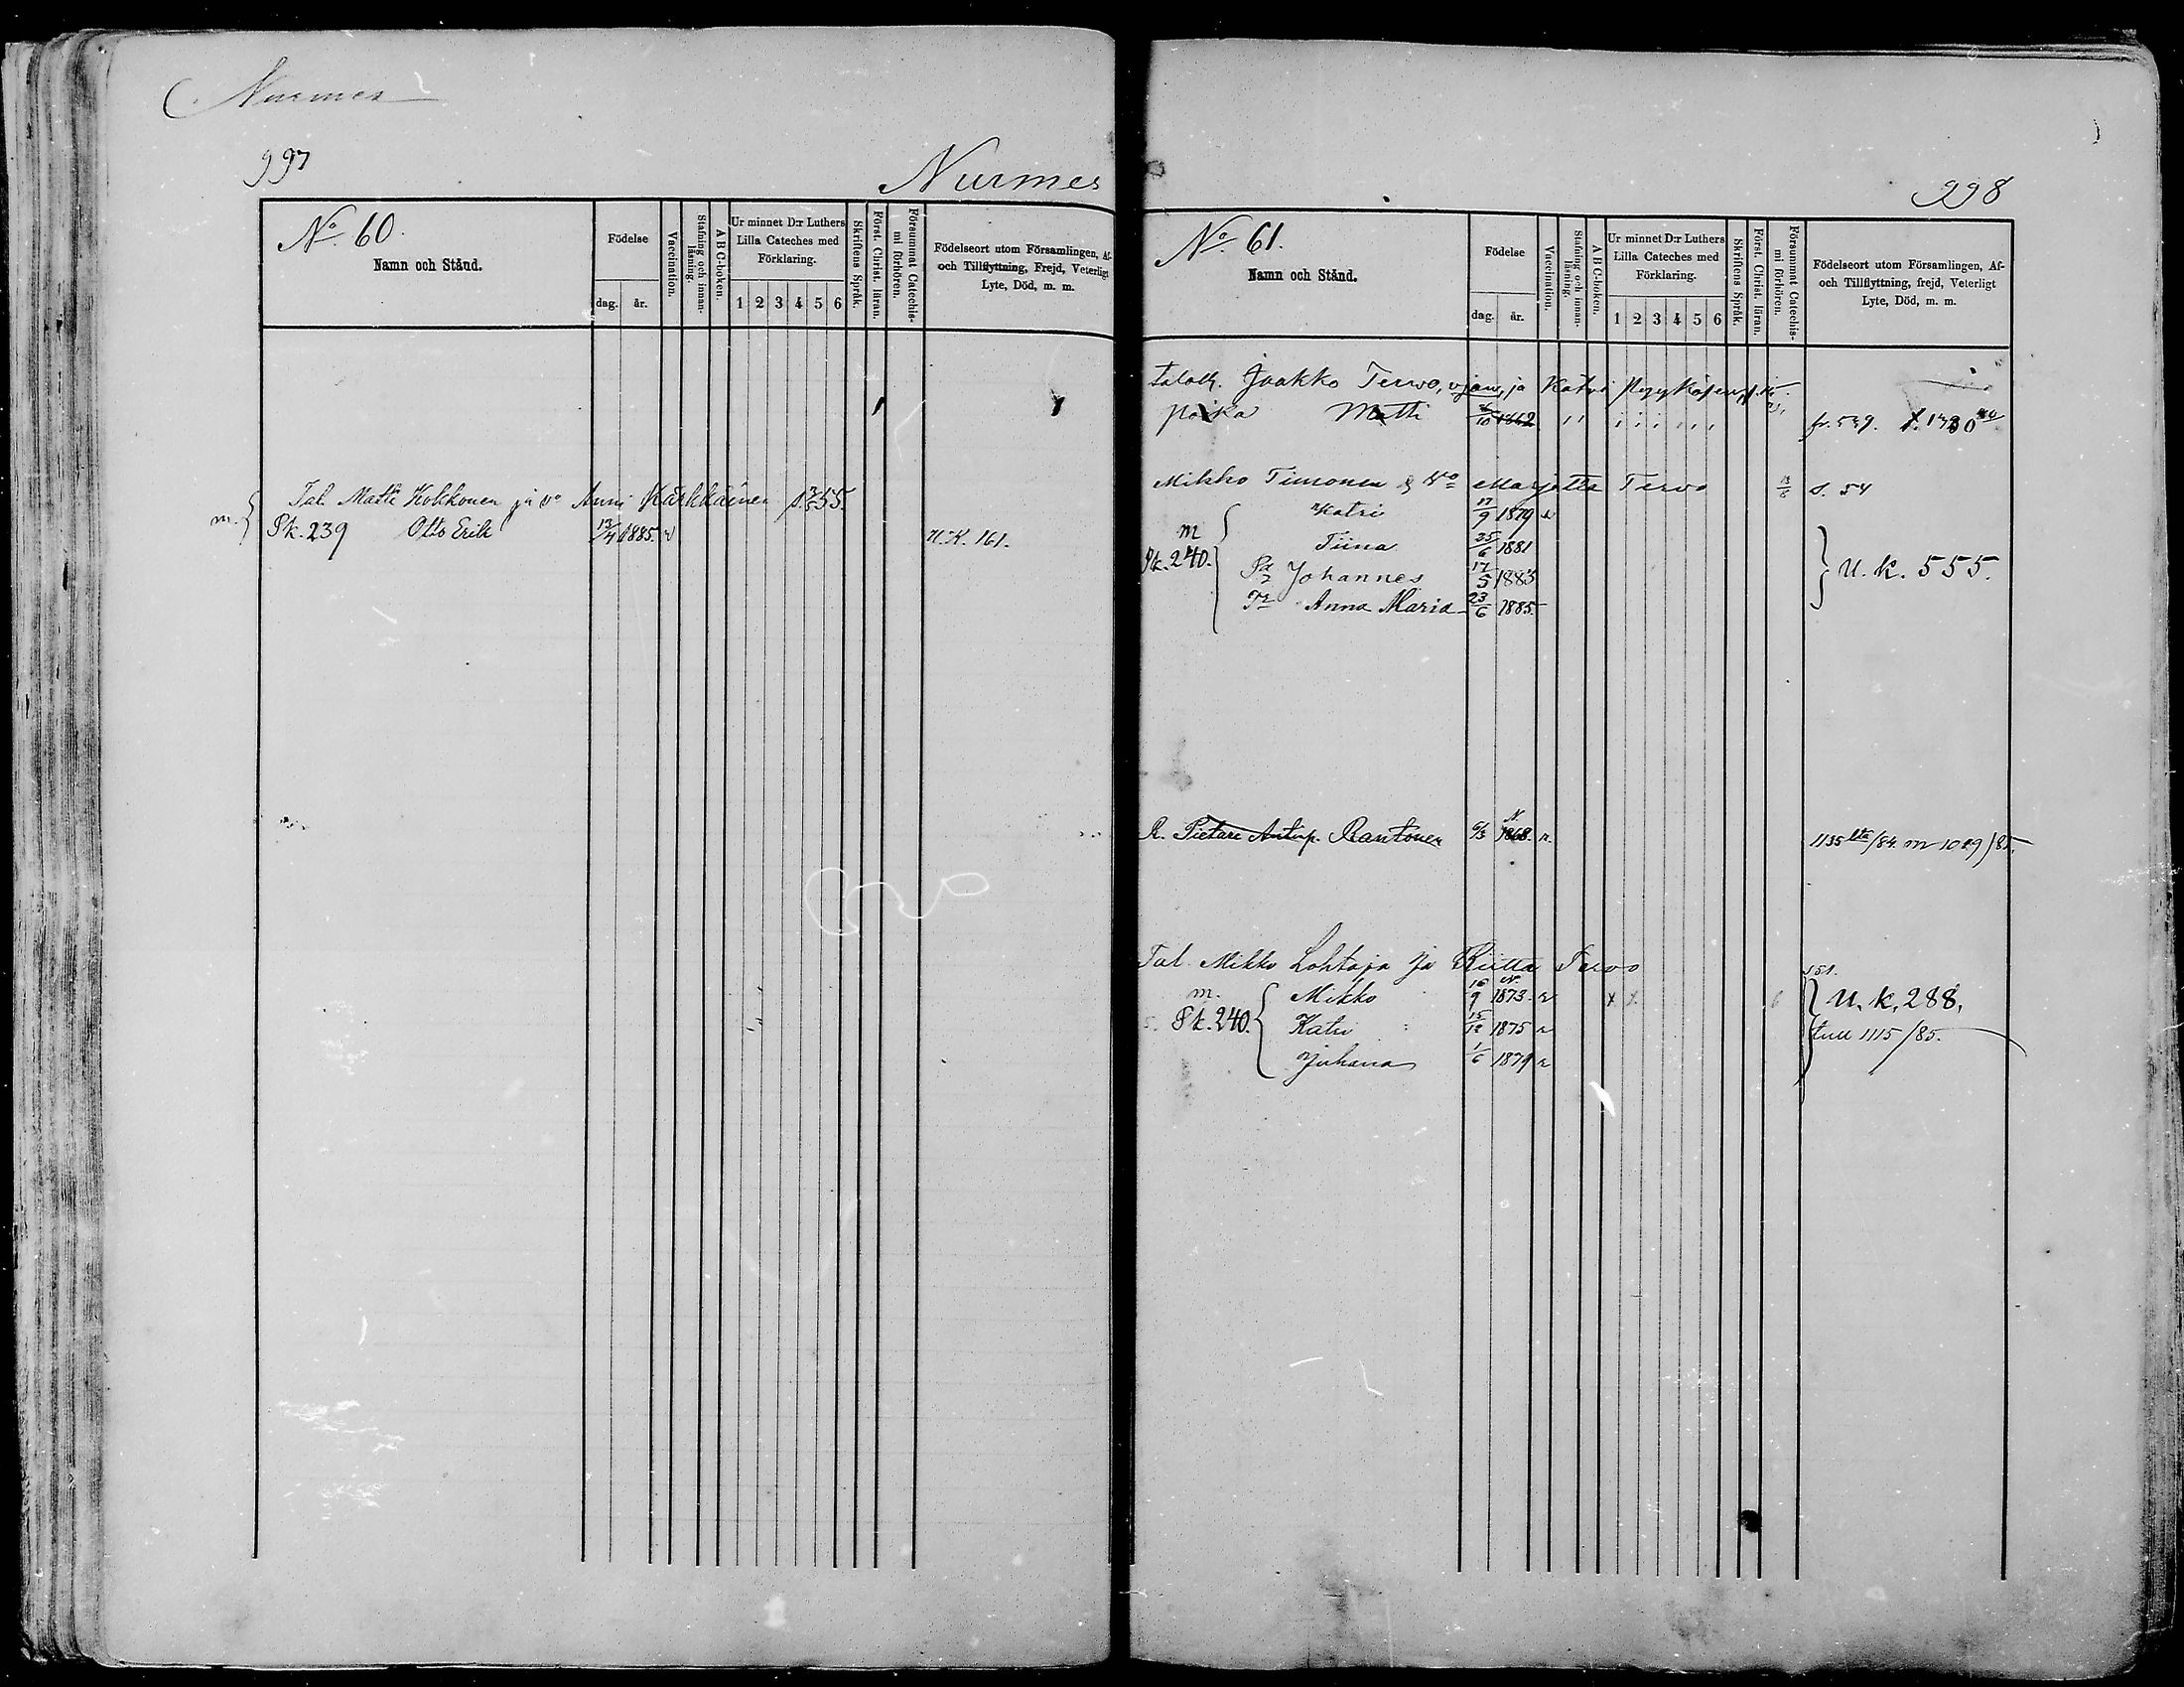 Nurmes
997
Nurmes
No 60.
Namn och Stånd.
Födelse
dag. år.
Vaccination.
Stafning och innanläsning.
A B C-boken.
Ur minnet D:r Luthers Lilla Cateches med Förklaring.
1 2 3 4 5 6
Skriftens Språk.
Först. Christ. läran.
Försummat Catechismi förhören.
Födelseort utom Församlingen, Af-
och Tillflyttning, Frejd, Veterligt
Lyte, Död, m. m.
Tal. Matti Kokkonen ja vo Anni Kärkkäinen
m. Pk. 239 Otto Erik 13/4 1885. v U.K. 161.
998
No 61.
Namn och Stånd.
Födelse
dag. år.
Vaccination.
Stafning och innanläsning.
A B C-boken.
Ur minnet D:r Luthers Lilla Cateches med Förklaring.
1 2 3 4 5 6
Skriftens Språk.
Först. Christ. läran.
Försummat Catechismi förhören.
Födelseort utom Församlingen, Af-
och Tillflyttning, frejd, Veterligt
Lyte, Död, m. m.
Jaakko Tervo, ja Katri
poika Matti 1862
Mikko Timonen & Vo Marjetta Tervo s. 54
Katri 17/9 1879 v
m
Tiina 25/6 1881
Pk. 240. Johannes 17/5 1883 U. k. 555.
Anna Maria 23/6 1885.
R. Pietari Antinp. Rantonen 6/3 1868. 1135 /84. m 1029/85.
Tal. Mikko Lohtaja ja Riitta Tervo
551.
m. Mikko 16/9 1873. v x x U. k. 288.
Pk. 240. Katri 15/12 1875 v 1115/85.
Juhana 1/6 1879 v